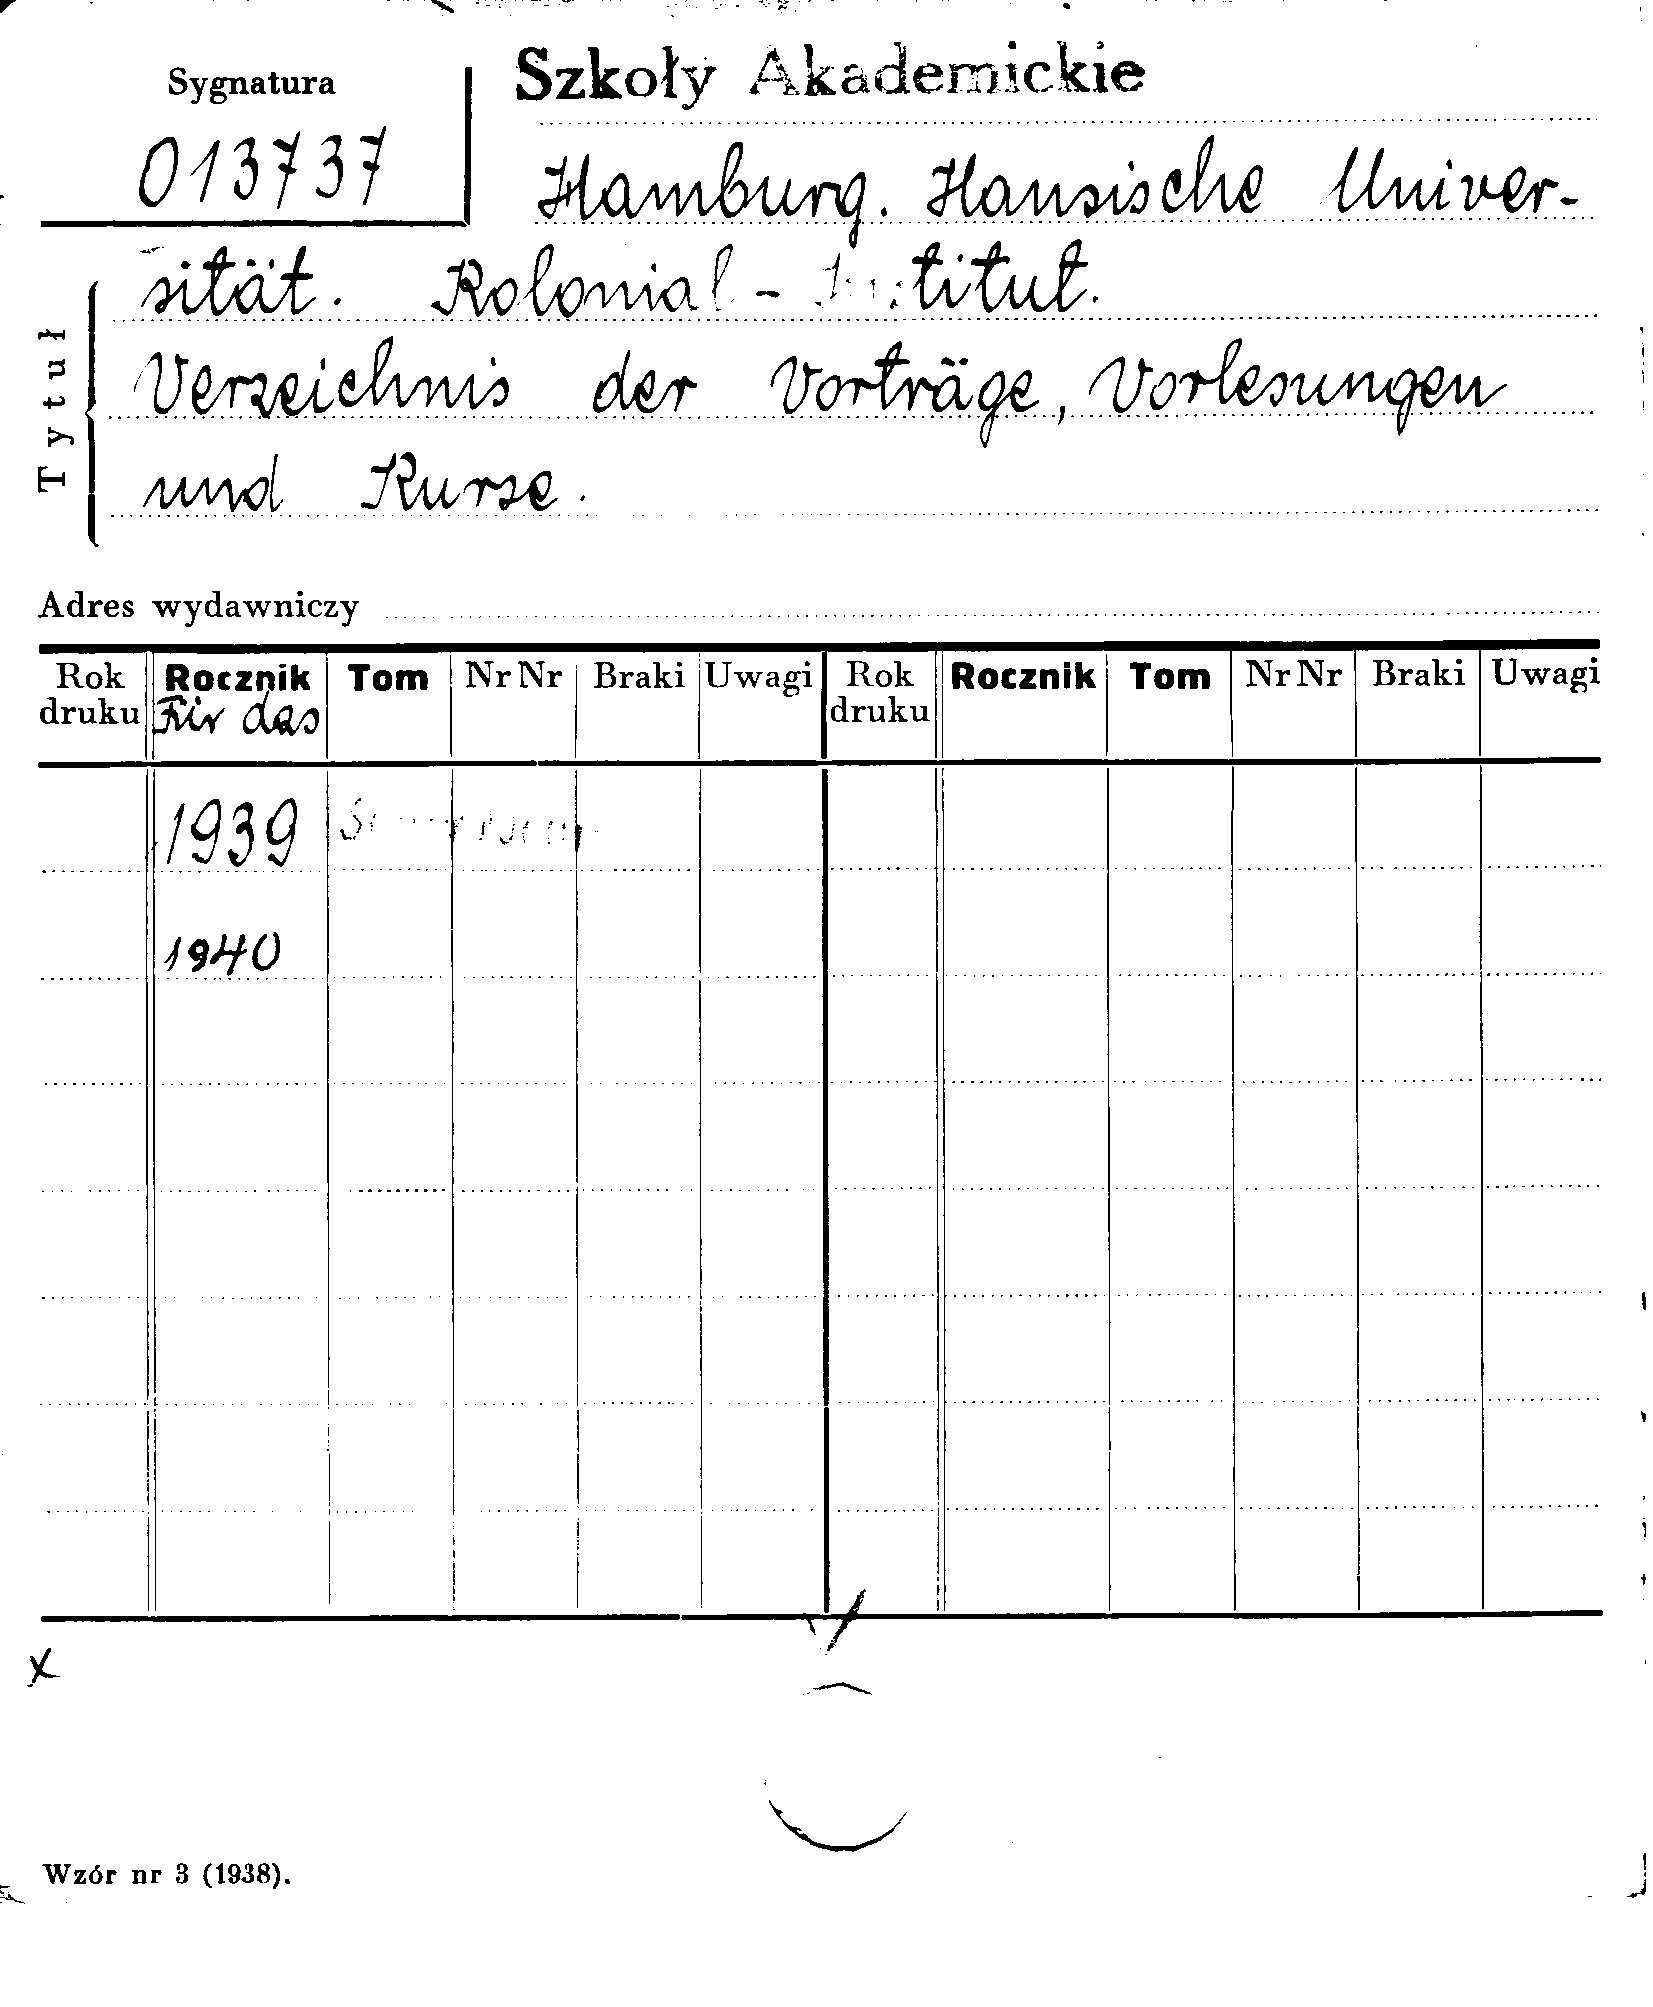 Sygnatura
Szkoły Akademickie
013737
Hamburg. Hansische Univer-
sität. Kolonial-Institut.
Tytuł
Verzeichnis der Vorträge, Vorlesungen
und Kurse.
Adres wydawniczy
Rok druku Rocznik Tom Nr Nr Braki Uwagi Rok druku Rocznik Tom Nr Nr Braki Uwagi
Für das
1939
1940
x
Wzór nr 3 (1938).